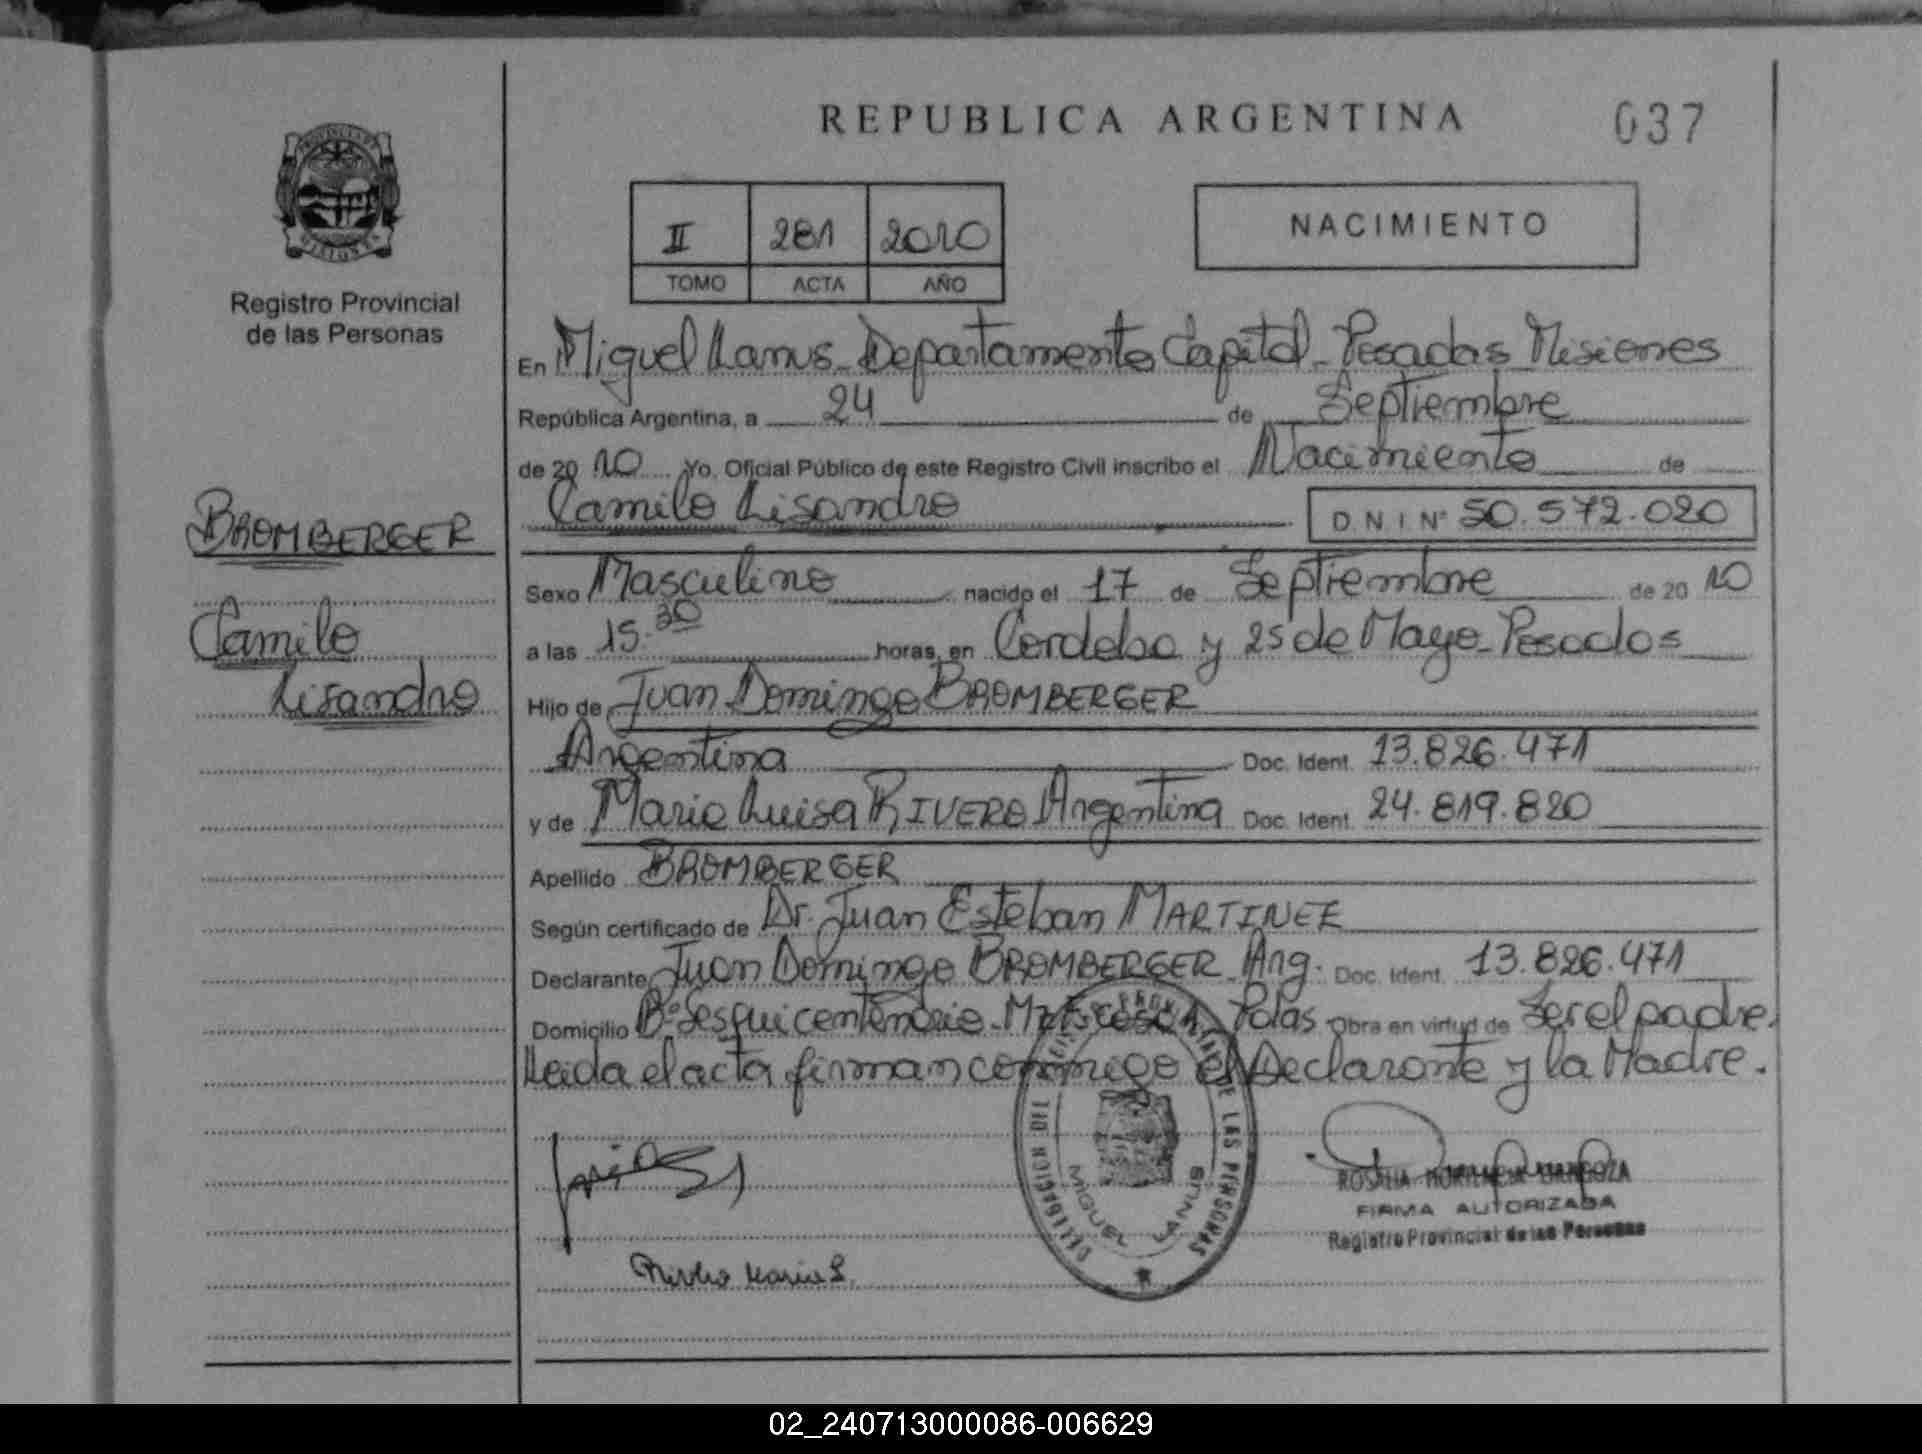 REPUBLICA ARGENTINA
037
II 281 2010
TOMO ACTA AÑO
NACIMIENTO
PROVINCIA DE MISIONES
Registro Provincial
de las Personas
BROMBERGER
Camilo
Lisandro
En Miguel Lanus - Departamento Capital - Posadas Misiones
República Argentina, a 24 de Septiembre
de 2010 Yo, Oficial Público de este Registro Civil inscribo el Nacimiento de
Camilo Lisandro D.N.I Nº 50.572.020
Sexo Masculino nacido el 17 de Septiembre de 2010
a las 15.30 horas, en Cordoba y 25 de Mayo - Posadas
Hijo de Juan Domingo BROMBERGER
Argentina Doc. Ident. 13.826.471
y de Maria Luisa RIVERO Argentina Doc. Ident. 24.819.820
Apellido BROMBERGER
Según certificado de Dr. Juan Esteban MARTINEZ
Declarante Juan Domingo BROMBERGER - Arg. Doc. Ident. 13.826.471
Domicilio Bº Sesquicentenario - Mz Pdas. Obra en virtud de Ser el padre.
Leida el acta firman conmigo el Declarante y la Madre.
DELEGACION DEL REGISTRO PROVINCIAL DE LAS PERSONAS
MIGUEL LANUS
Rivero Maria L.
ROSALIA
FIRMA AUTORIZADA
Registro Provincial de las Personas
02_240713000086-006629